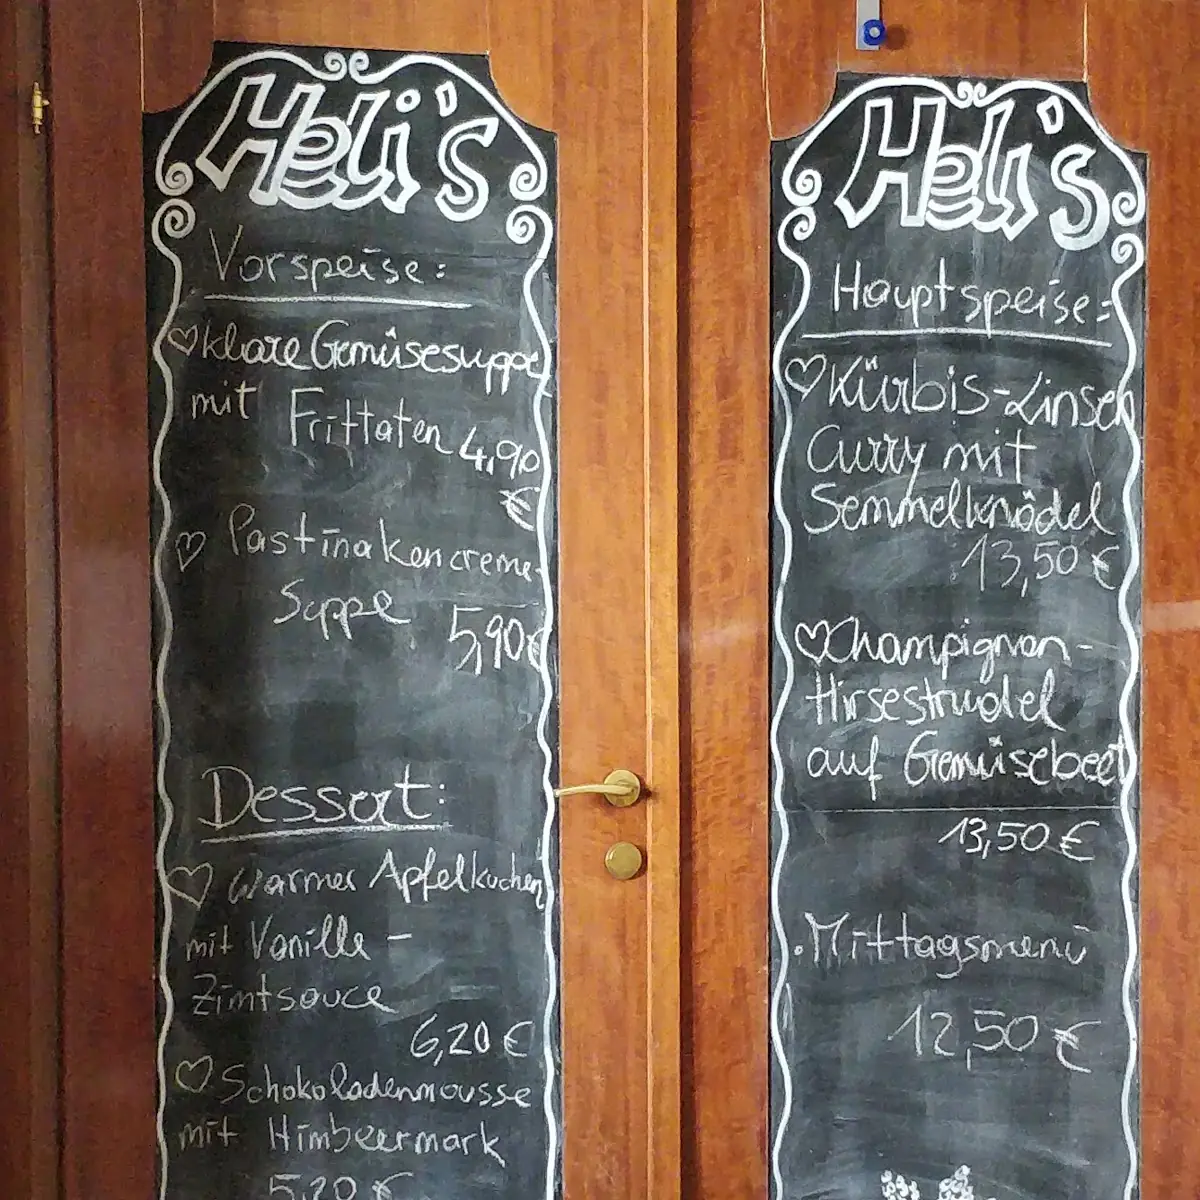 Heli's
Vorspeise:
klare Gemüsesuppe
mit Frittaten 4,90
€
Pastinakencreme-
Suppe 5,90€
Dessert:
Warmer Apfelkuchen
mit Vanille-
Zimtsauce
6,20 €
Schokoladenmousse
mit Himbeermark
5,20 €
Heli's
Hauptspeise:
Kürbis-Linsen
Curry mit
Semmelknödel
13,50 €
Champignon-
Hirsestrudel
auf Gemüsebeet
13,50 €
Mittagsmenü
12,50 €